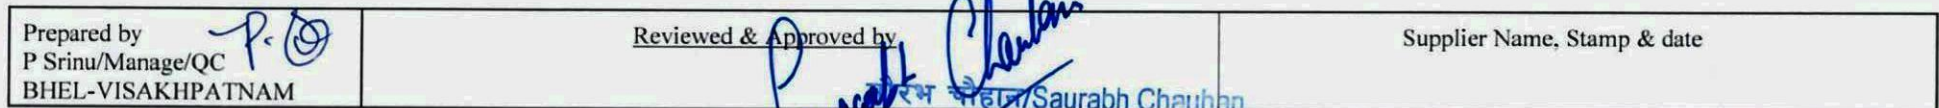 Prepared by
P Srinu/Manage/QC
BHEL-VISAKHPATNAM
Reviewed & Approved by
Chauhan
सौरभ चौहान/Saurabh Chauhan
Supplier Name, Stamp & date